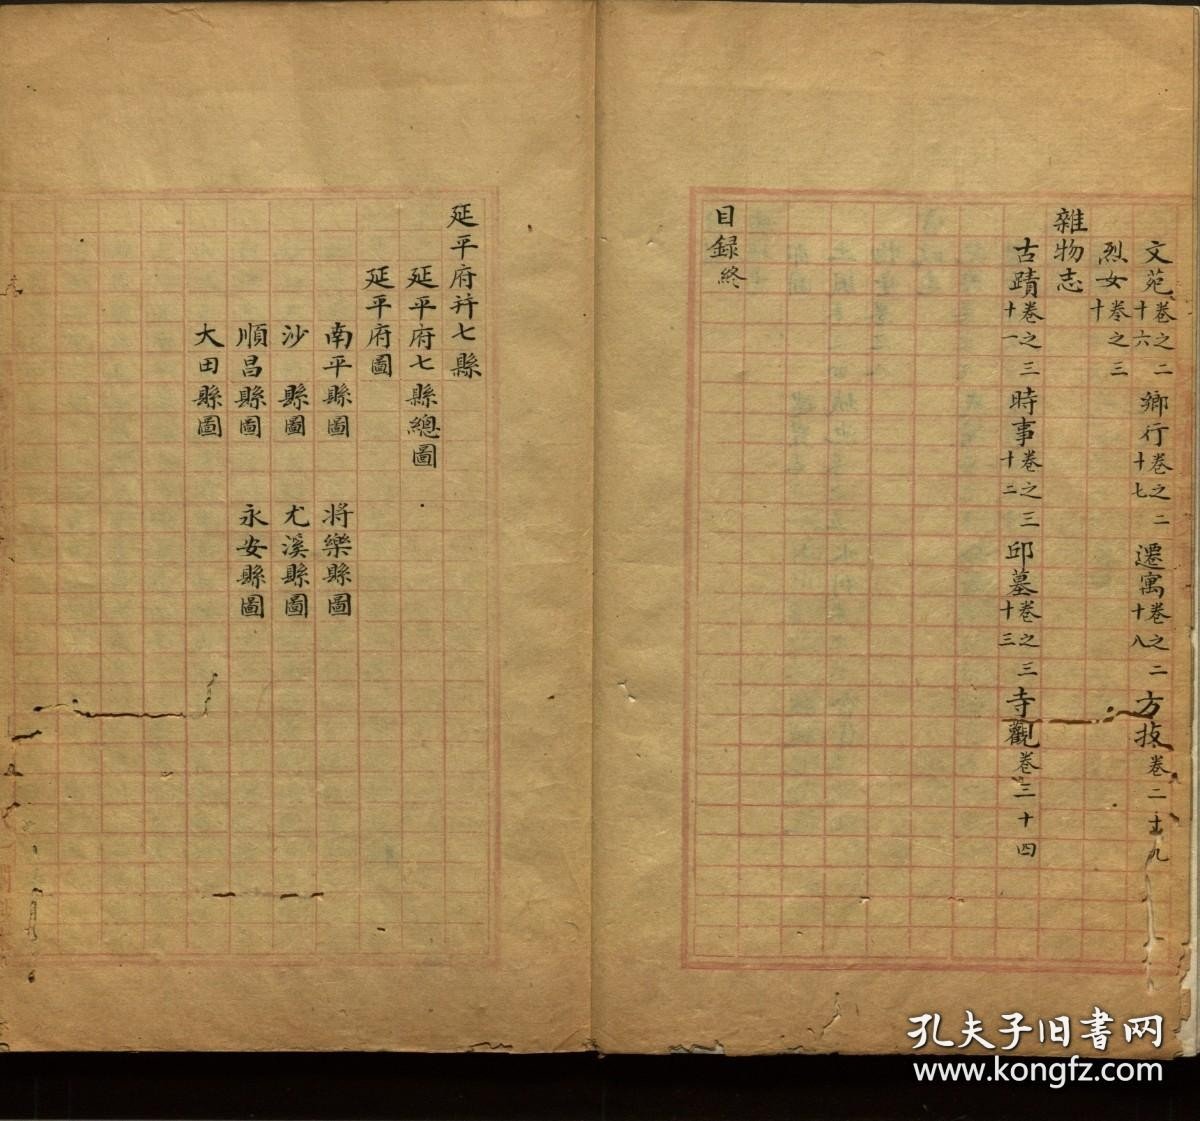 文苑卷之二十六 鄉行卷之二十七 遷寓卷之二十八 方技卷二十九
烈女卷之三十
雜物志
古蹟卷之三十一 時事卷之三十二 邱墓卷之三十三 寺觀卷三十四
目録終
延平府并七縣
延平府七縣總圖
延平府圖
南平縣圖 將樂縣圖
沙縣圖 尤溪縣圖
順昌縣圖 永安縣圖
大田縣圖
孔夫子旧书网
www.kongfz.com